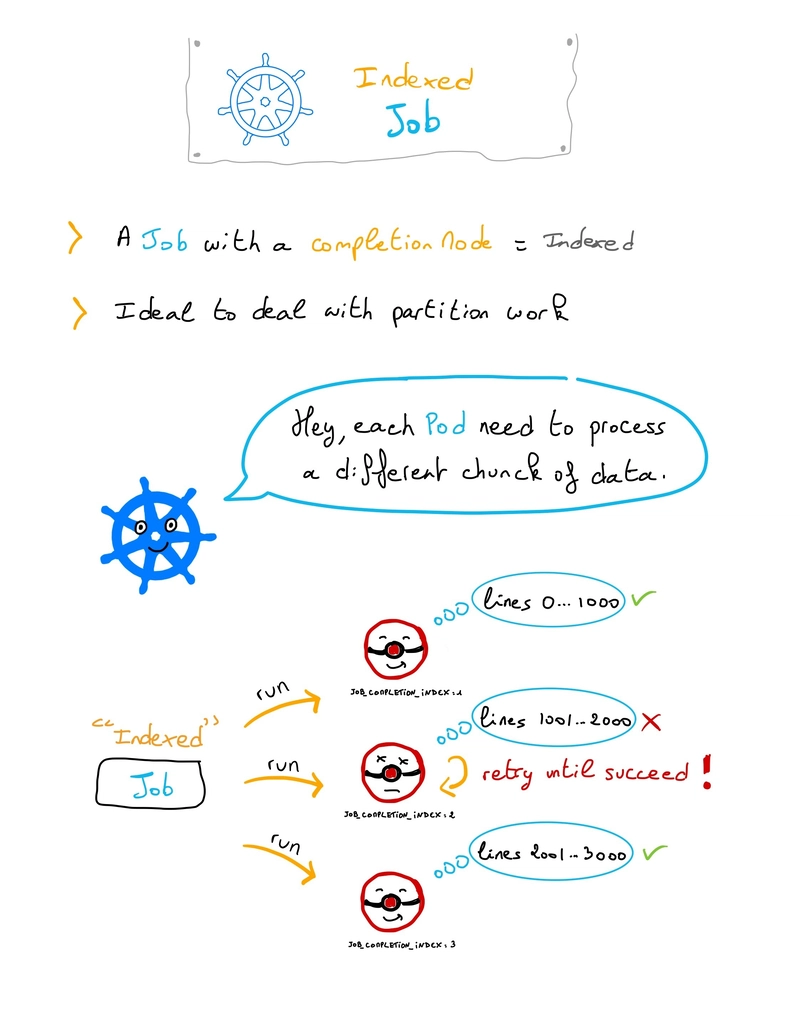 Indexed
Job
A Job with a completion Mode = Indexed
Ideal to deal with partition work
Hey, each Pod need to process
a different chunck of data.
lines 0...1000
run
JOB_COMPLETION_INDEX:1
"Indexed"
Job
lines 1001...2000
run
retry until succeed!
JOB_COMPLETION_INDEX:2
run
lines 2001...3000
JOB_COMPLETION_INDEX:3